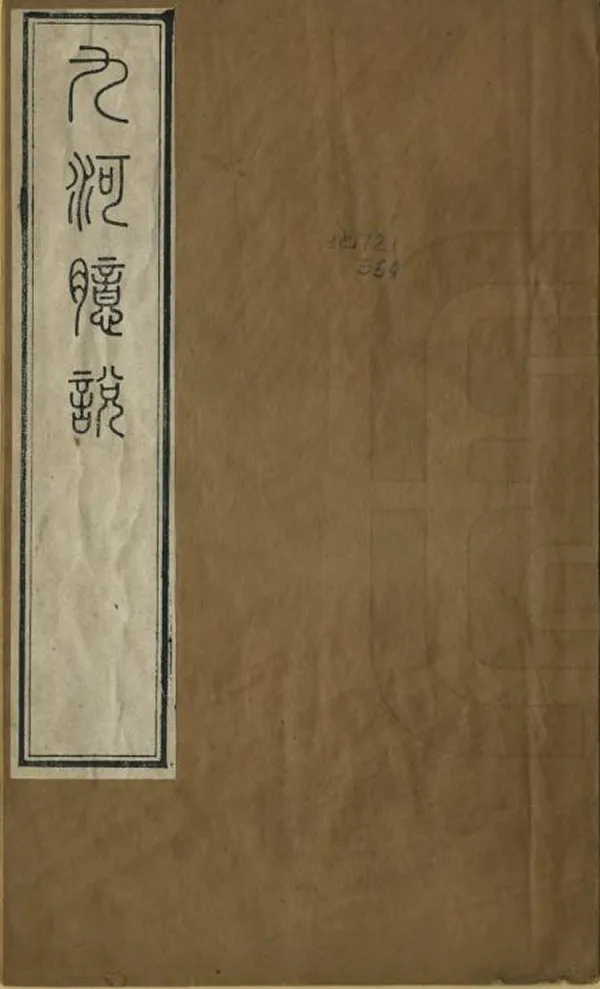 九河臆說
地721
354